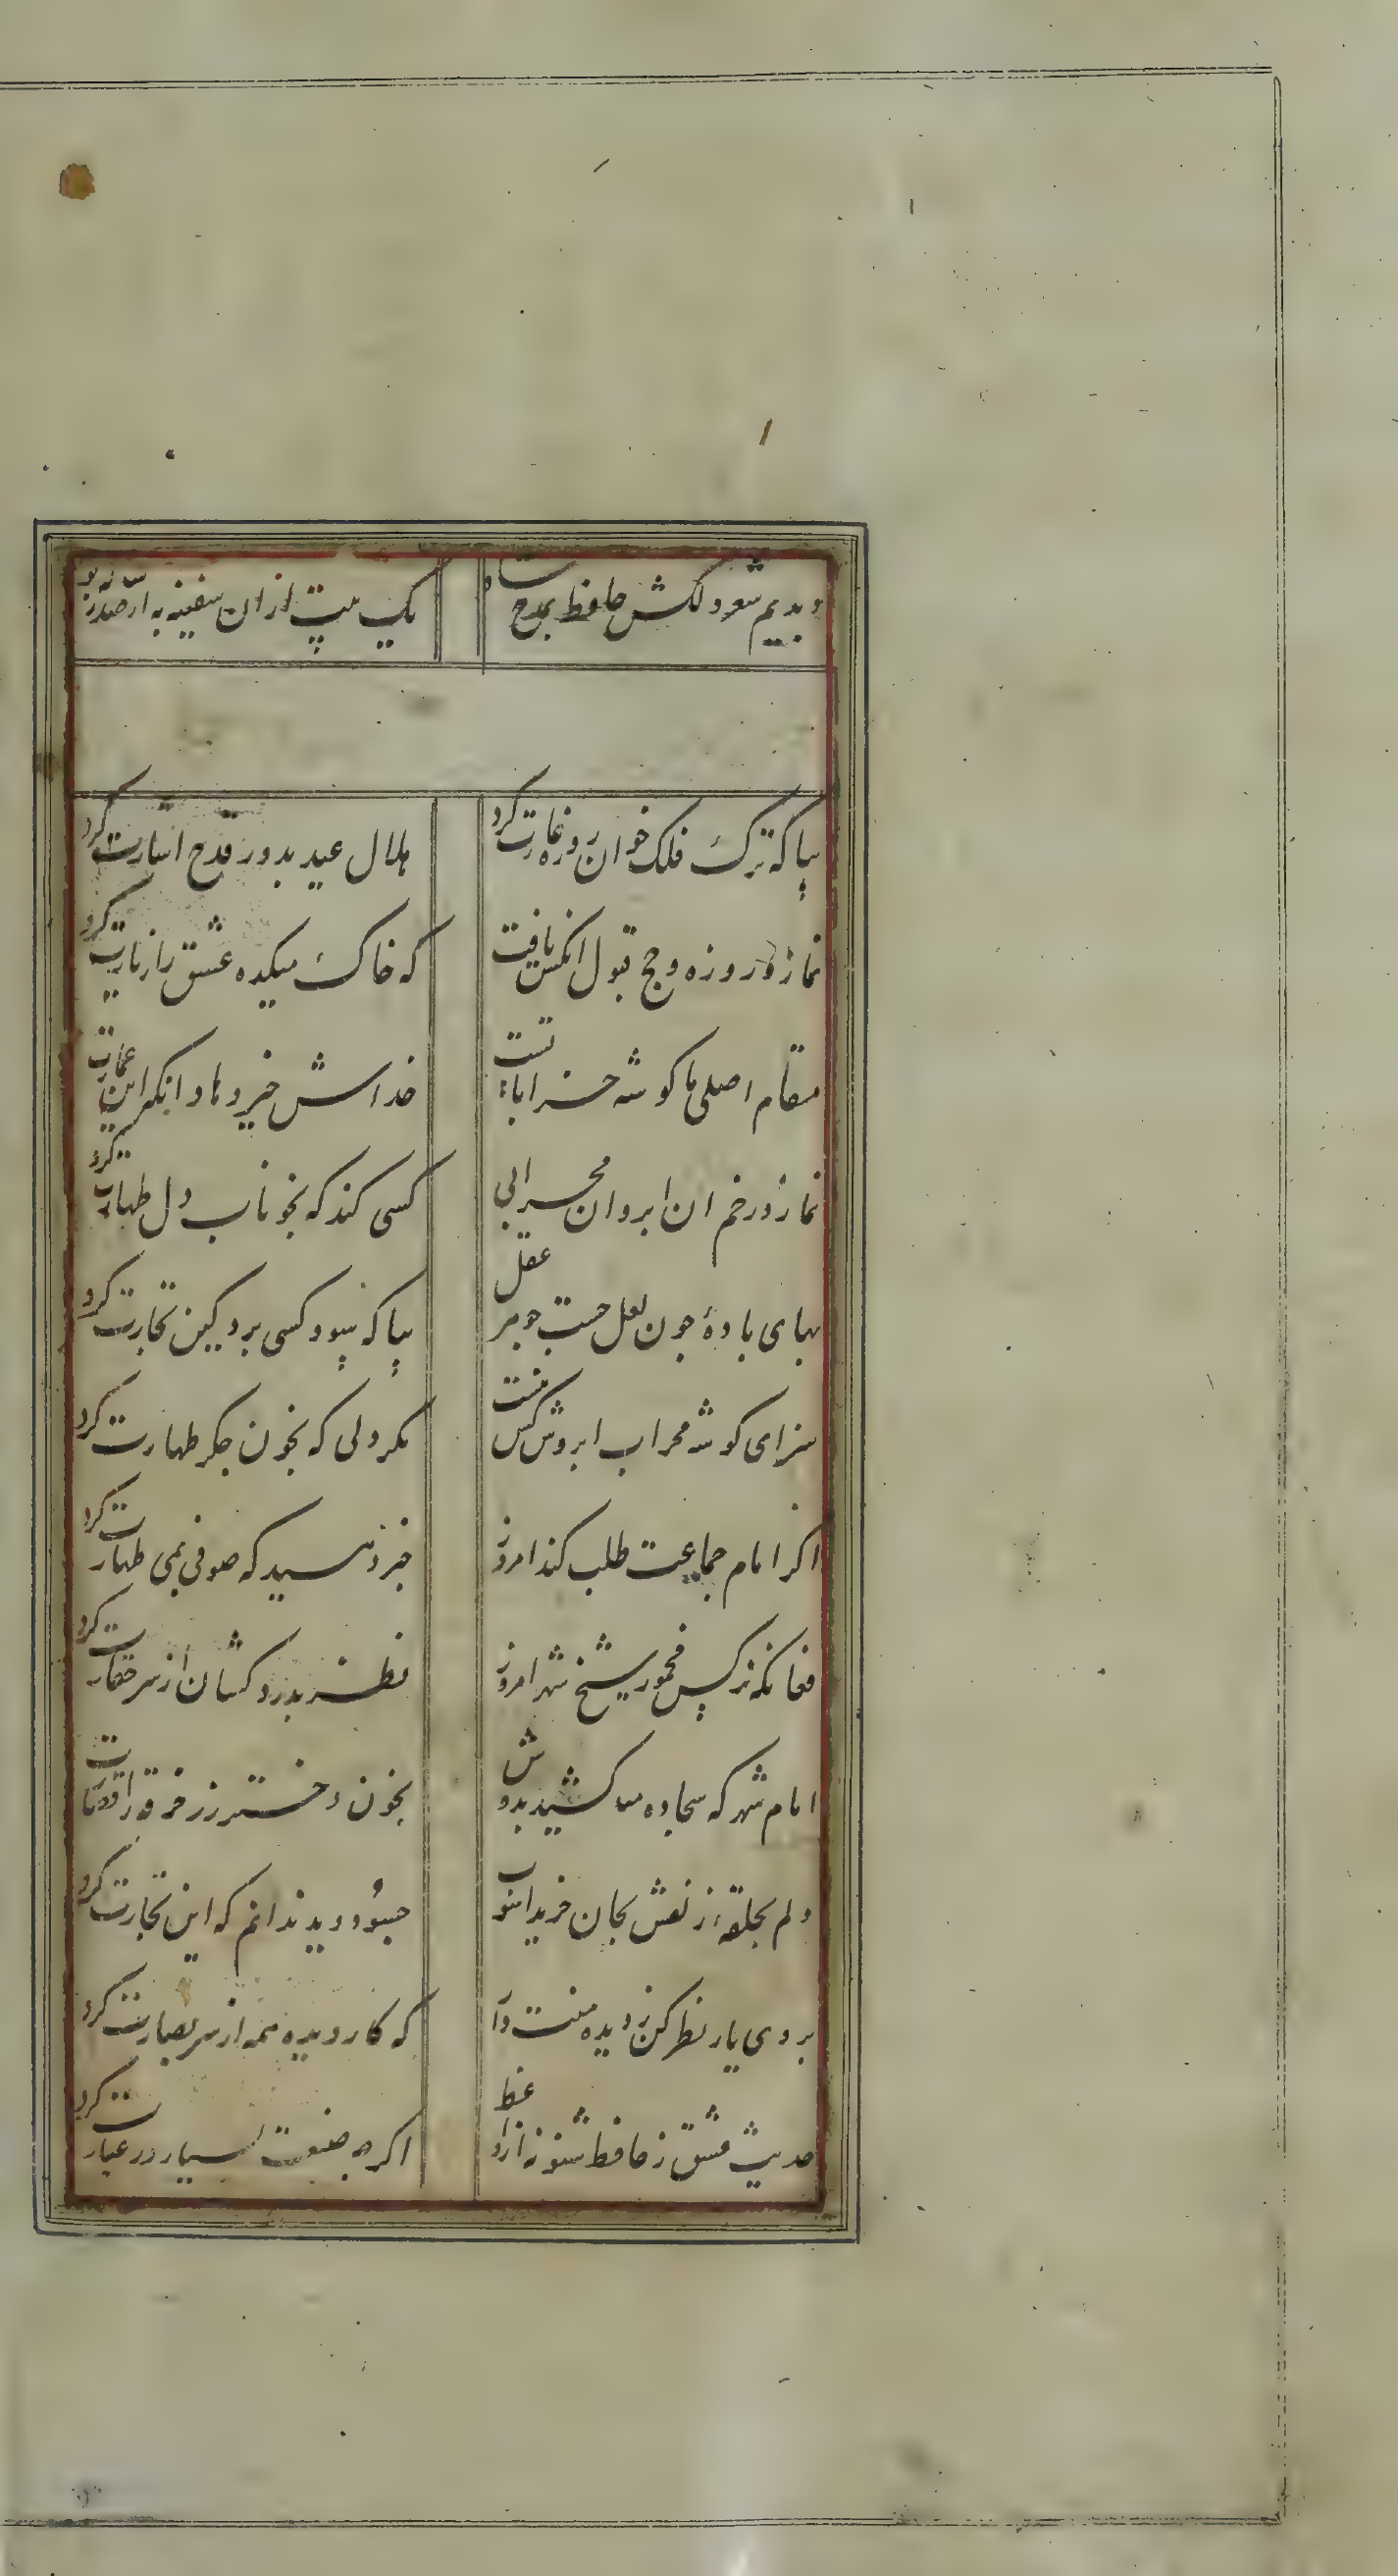 دیدیم شعر دلکش حافظ بمدح شاه
یک بیت ازان سفینه به از صد رساله بود
بیا که ترک فلک خوان روزه غارت کرد
هلال عید بدور قدح اشارت کرد
نماز و روزه و حج قبول انکس یافت
که خاک میکده عشق را زیارت کرد
مقام اصلی ما کوشه خراباتست
خداش خیر دهاد انکه این عمارت کرد
نماز در خم ان ابروان محرابی
کسی کند که بخوناب دل طهارت کرد
بهای بادهٔ چون لعل چیست جوهر عقل
بیا که سود کسی برد کین تجارت کرد
سزای کوشه محراب ابروش کس نیست
مکر دلی که بخون جکر طهارت کرد
اکر امام جماعت طلب کند امروز
خبر دهید که صوفی بمی طهارت کرد
فغانکه نرکس مخمور شیخ شهر امروز
نظر بدردکشان از سر حقارت کرد
امام شهر که سجاده میکشید بدوش
بخون دختر رز خرقه را قصارت
دلم بحلقهٔ زلفش بجان خرید اشوب
چه سود دید ندانم که این تجارت کرد
بروی یار نظر کن ز دیده منت دار
که کار دیده همه از سر بصارت کرد
حدیث عشق ز حافظ شنو نه از واعظ
اکرچه صنعت بسیار در عبارت کرد